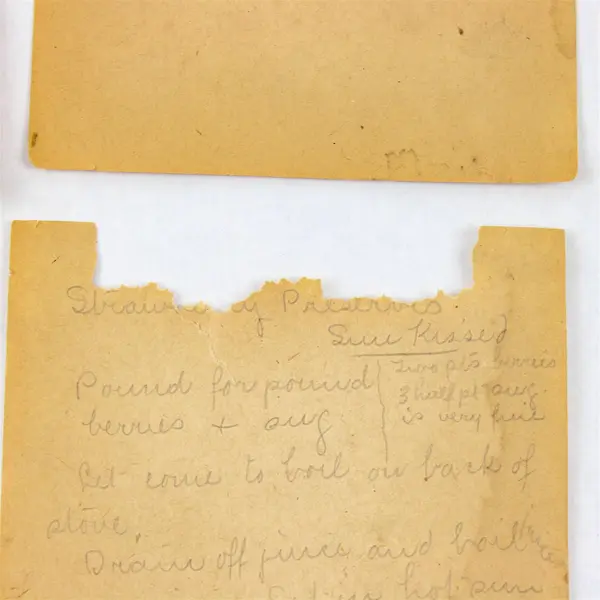 Strawberry Preserves
Sun Kissed
Pound for pound
berries + sug
Two pts berries
3 half pt sug
is very fine
Let come to boil on back of
stove.
Drain off juice and boil
Set in hot sun